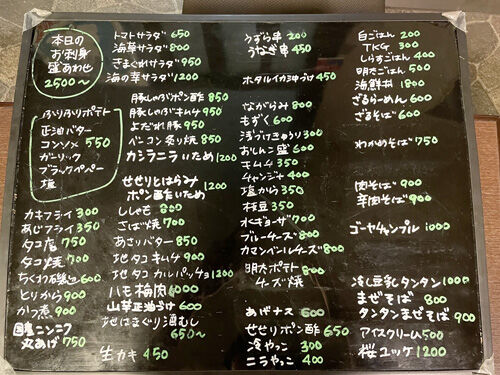 本日の
お刺身
盛あわせ
2500～
ふりふりポテト
正油バター
コンソメ 550
ガーリック
ブラックペーパー
塩
カキフライ 300
あじフライ 350
タコ唐 750
タコ焼 700
ちくわ磯辺 600
とりから 900
かつ煮 900
国産ニンニク
丸あげ 750
トマトサラダ 650
海草サラダ 800
きまぐれサラダ 950
海の幸サラダ 1200
豚しゃぶポン酢 850
豚しゃぶキムチ 950
よだれ豚 950
ベーコン炙り焼 800
カシラニラいため 1200
せせりとはらみ
ポン酢いため 1200
ししゃも 800
さば焼 700
あさりバター 850
地タコキムチ 900
地タコカルパッチョ 1200
ハモ梅肉 1000
山芋正油づけ 600
地はまぐり酒むし
650～
生カキ 450
うずら串 200
うなぎ串 450
ホタルイカ沖づけ 450
ながらみ 800
もずく 600
浅づけきゅうり 300
おしんこ盛 600
キムチ 350
チャンジャ 400
塩から 350
枝豆 350
水ギョーザ 700
ブルーチーズ 800
カマンベールチーズ 800
明太ポテト
チーズ焼 800
あげナス 600
せせりポン酢 650
冷やっこ 300
ニラやっこ 400
白ごはん 200
TKG 300
しらすごはん 400
明太ごはん 500
海鮮丼 1800
ざるらーめん 600
ざるそば 600
わかめそば 750
肉そば 900
辛肉そば 900
ゴーヤチャンプル 1000
冷し豆乳タンタン 1000
まぜそば 800
タンタンまぜそば 900
アイスクリーム 500
桜ユッケ 1200